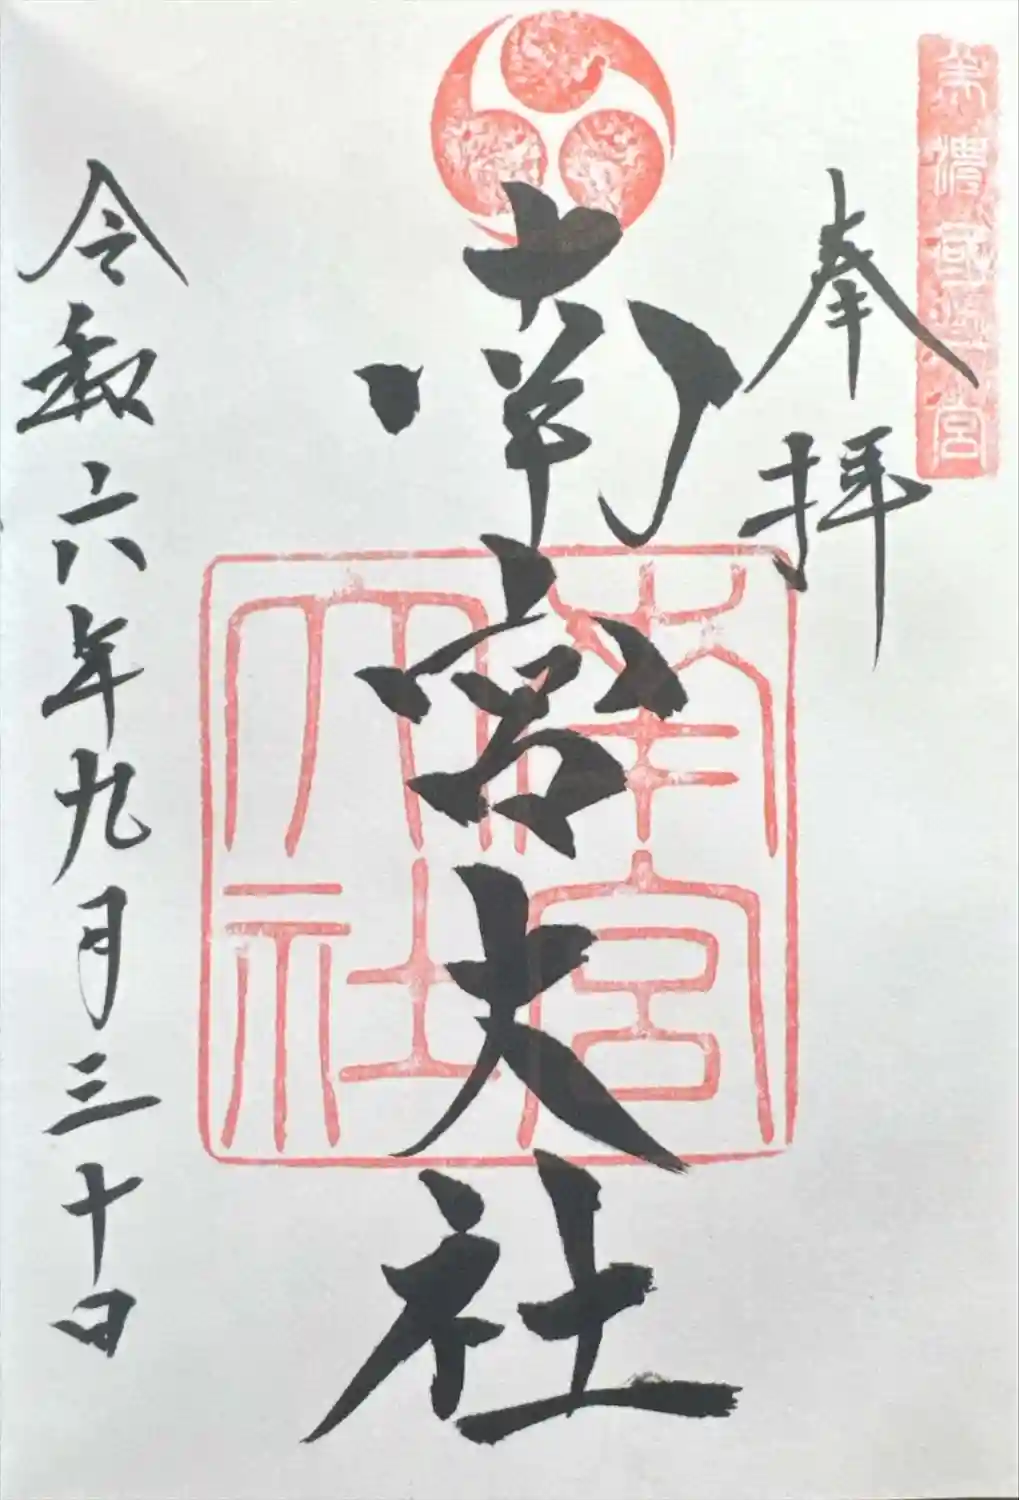 美濃國一宮
奉拝
南宮大社
南宮大社
令和六年九月三十日